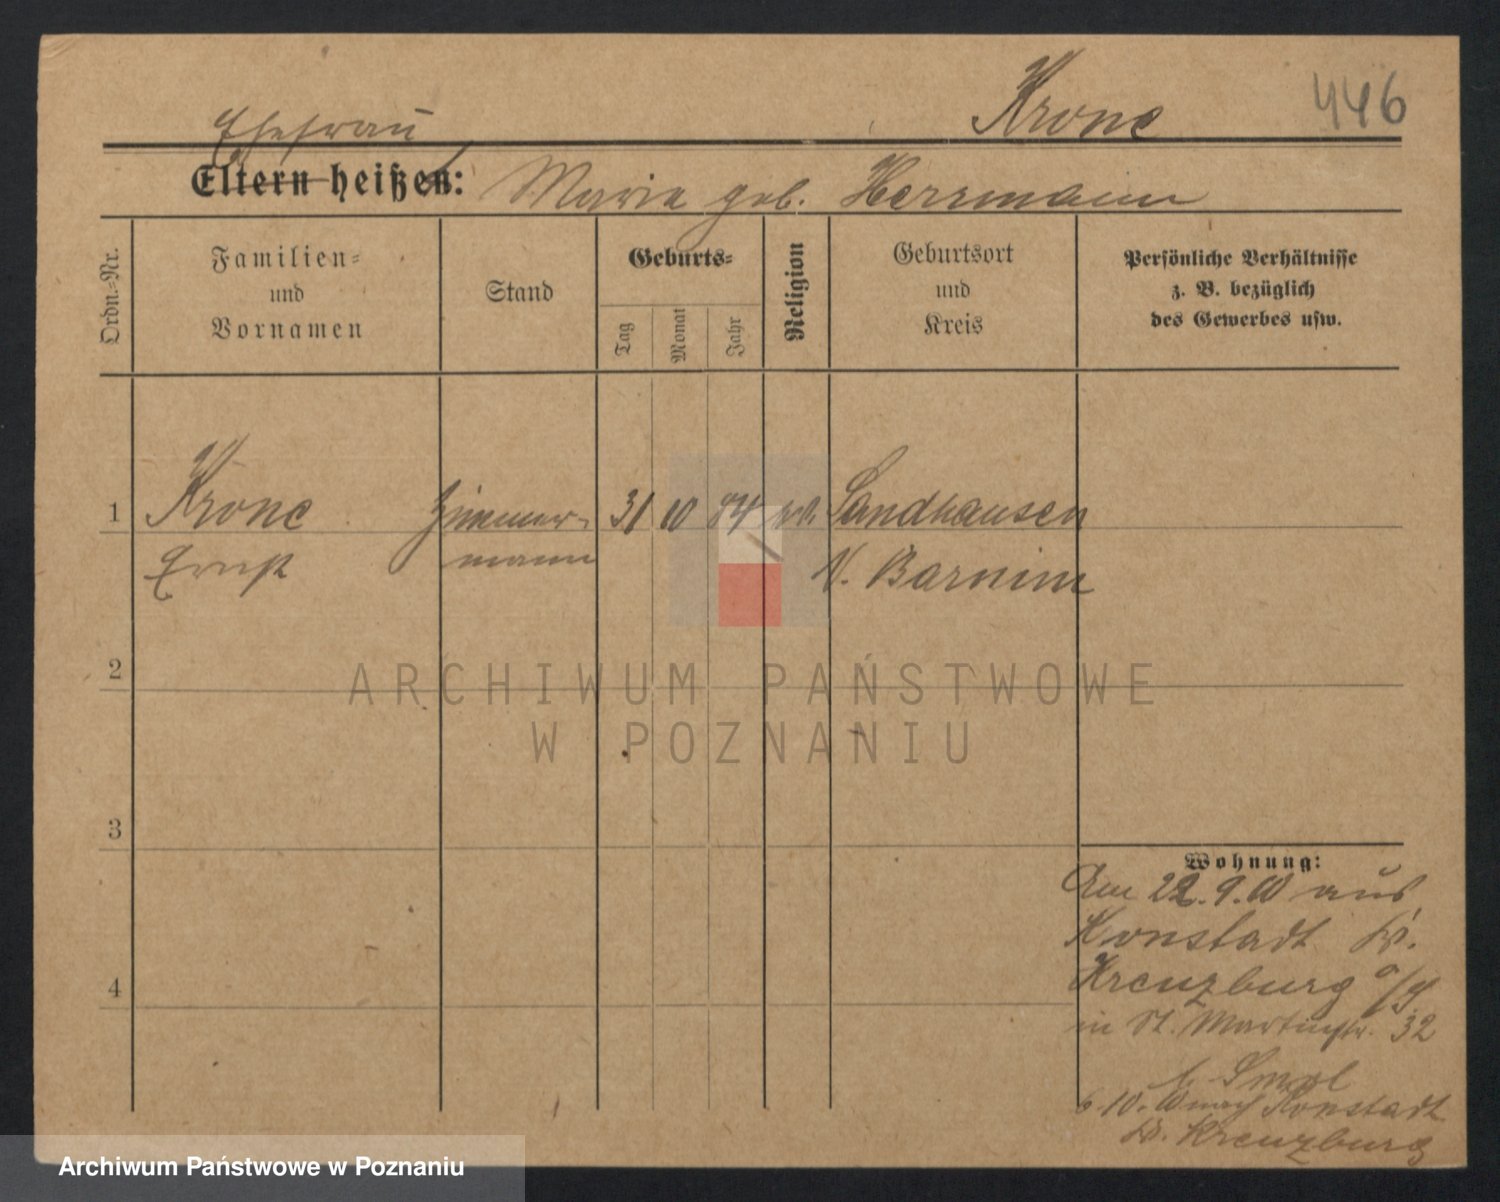 Krone 446
Ehefrau
Eltern heißen: Marie geb. Herrmann
Ordn.=Nr.
Familien=
und
Vornamen
Stand
Geburts=
Tag
Monat
Jahr
Religion
Geburtsort
und
Kreis
Persönliche Verhältnisse
z. B. bezüglich
des Gewerbes usw.
1 Krone Zimmer- 31 10 84 Sandhausen
Ernst mann N. Barnim
2
3
4
Wohnung:
Am 22.9.10 aus
Konstadt Kr.
Kreuzburg o/S.
in St. Martinstr. 32
6.10. 10 nach Konstadt
Kr. Kreuzburg
ARCHIWUM PAŃSTWOWE
W POZNANIU
Archiwum Państwowe w Poznaniu